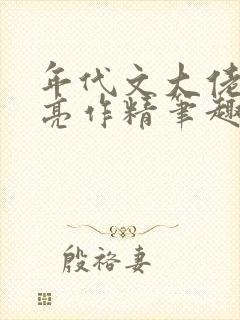 年代文大佬
亮作精笔趣
殷裕妻